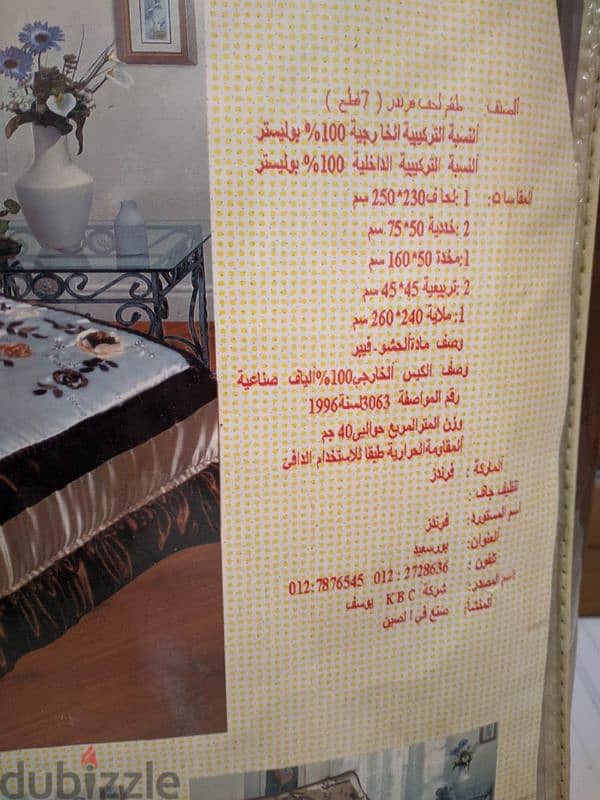 الصنف طقم لحف فرندز ( 7 قطع )
النسبة التركيبية الخارجية 100% بوليستر
النسبة التركيبية الداخلية 100% بوليستر
المقاسات: 1 :لحاف230*250 سم
2 :خددية 50*75 سم
1:مخدة 50*160 سم
2 :تربيعية 45*45 سم
1: ملاية 240*260 سم
وصف مادةالحشو- فيبر
وصف الكيس الخارجى100%ألياف صناعية
رقم المواصفة 3063لسنة1996
وزن المترالمربع حوالى40 جم
المقاومةالحرارية طبقا للاستخدام الدافى
الماركة : فرندز
تنظيف جاف :
أسم المستورد: فرندز
ألعنوان: بورسعيد
تلفون : 2728636 : 012 012:7876545
إسم المصدر: شركة KBC يوسف
ألمنشأ: صنع في الصين
dubizzle